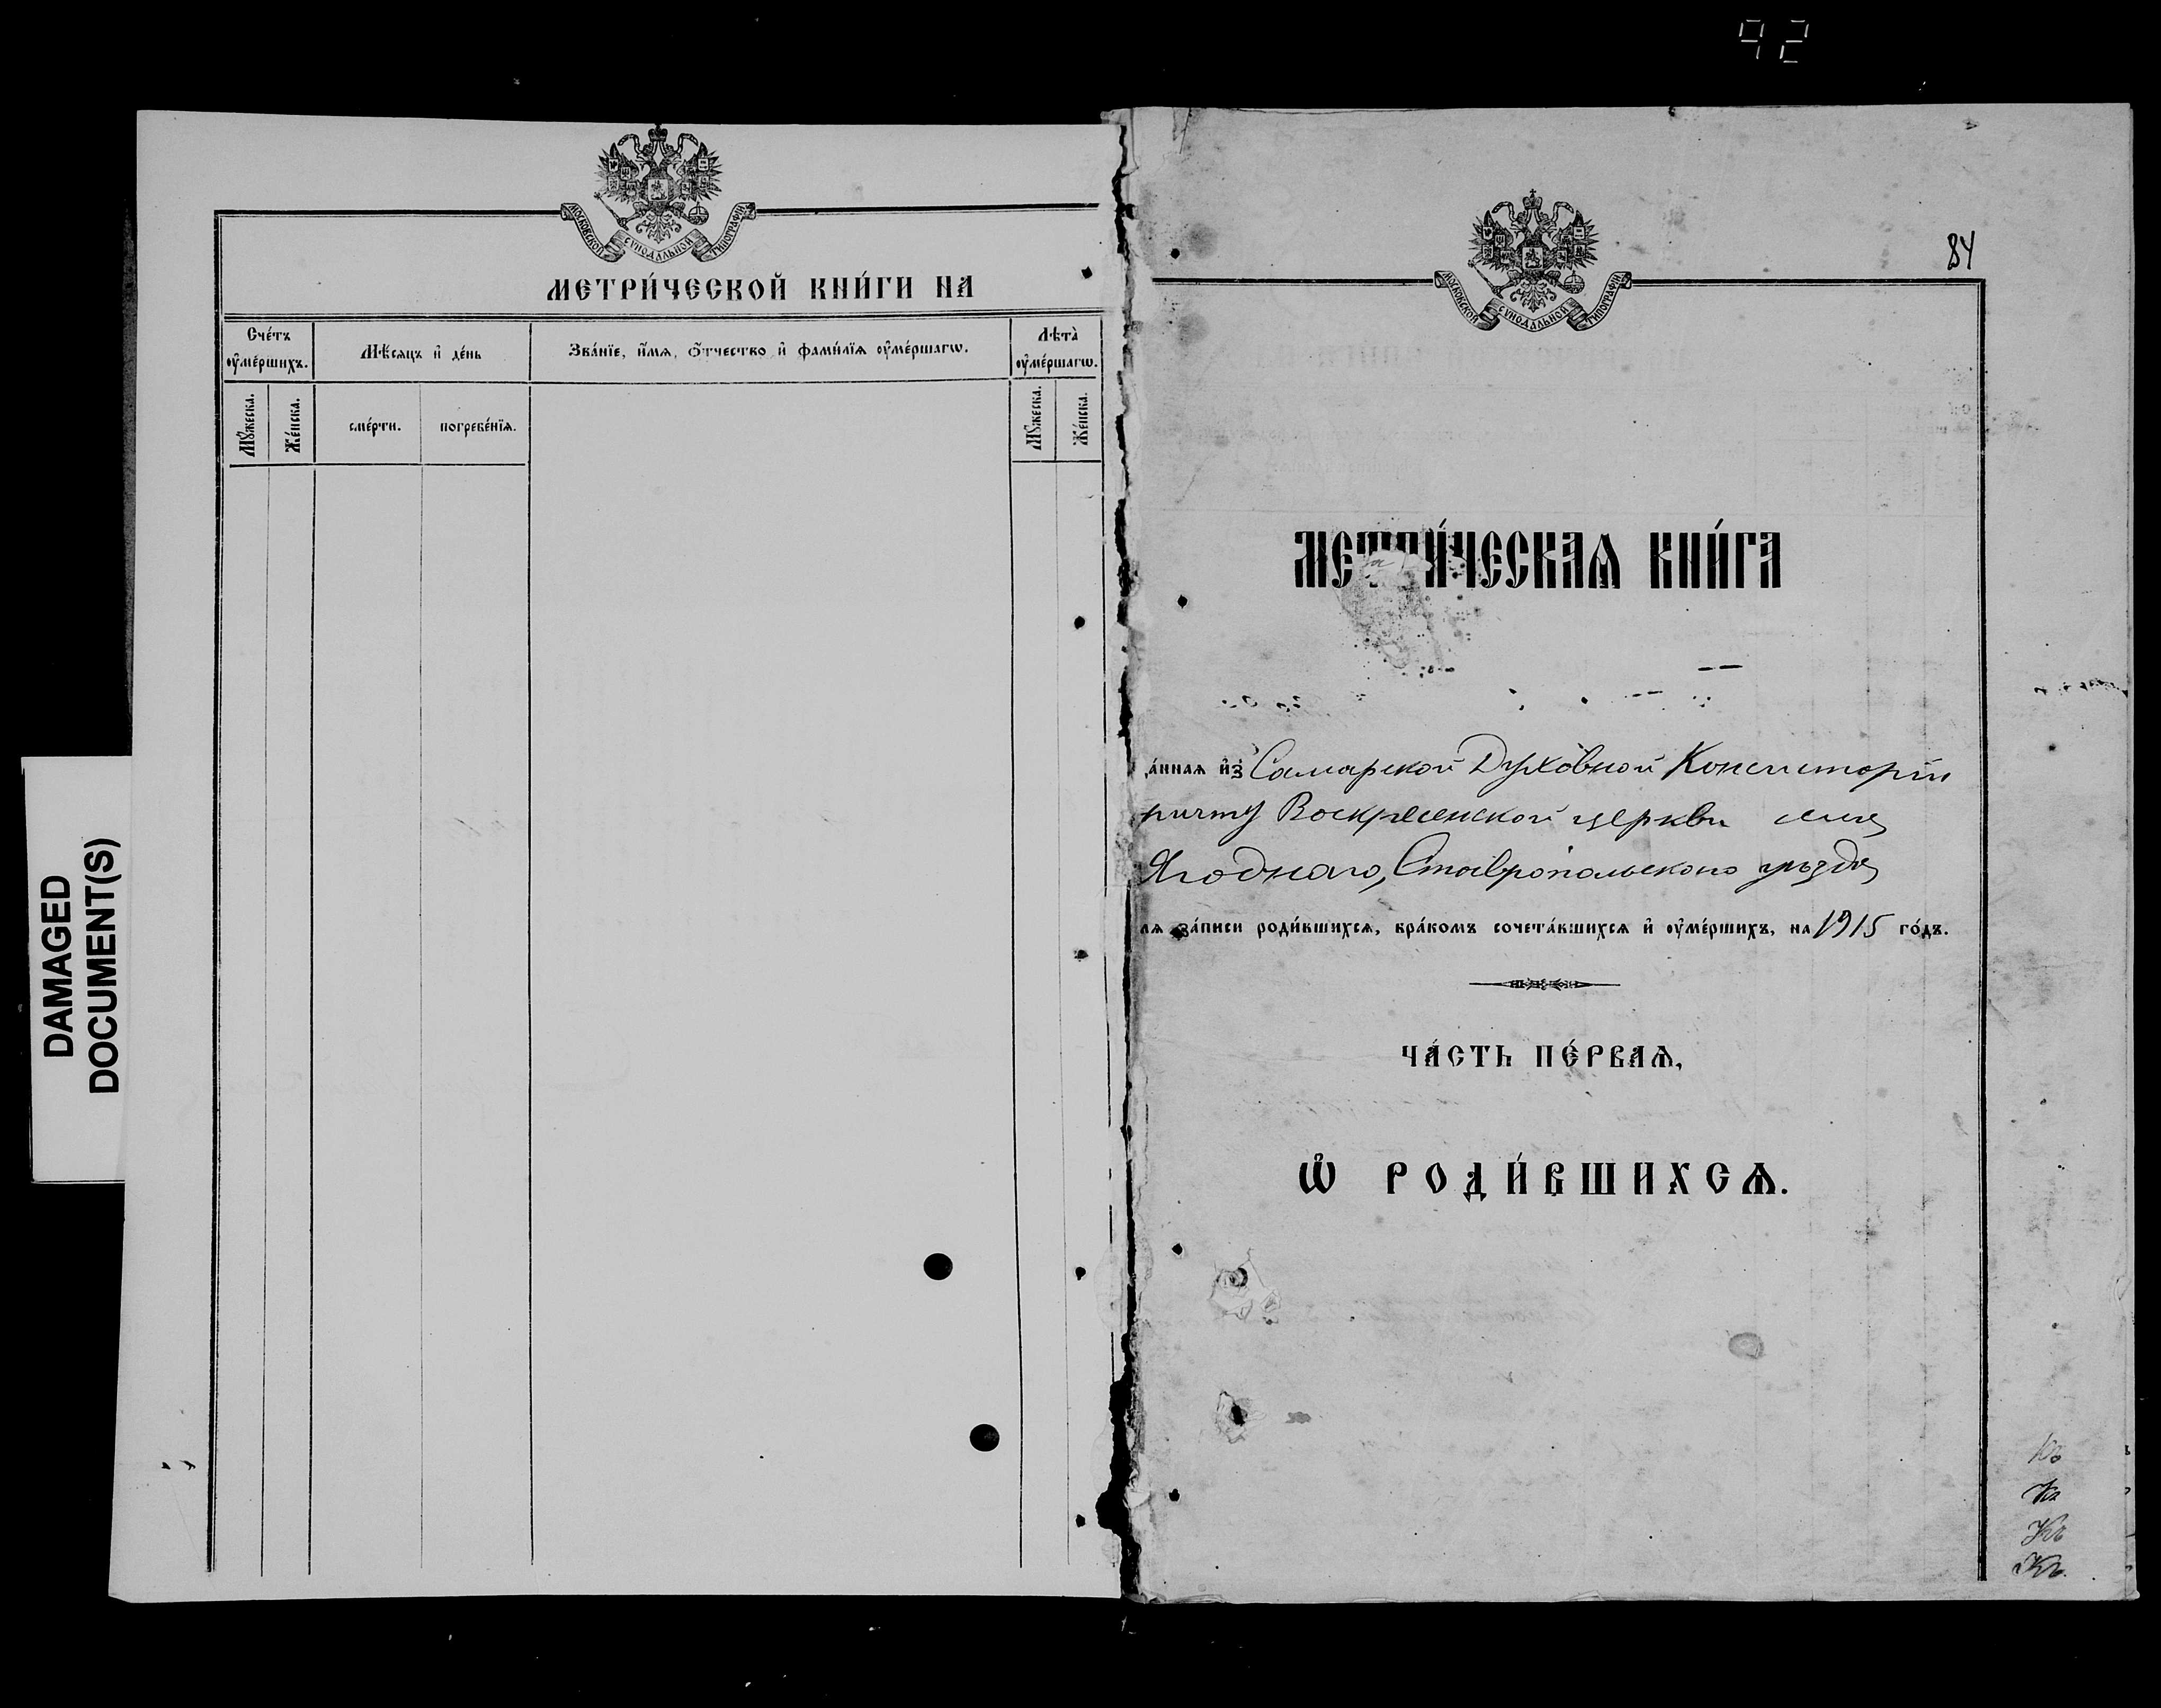 92
DAMAGED
DOCUMENT(S)
МОСКОВСКОЙ СѴНОДАЛЬНОЙ ТИПОГРАФІИ
МЕТРИ́ЧЕСКОЙ КНИ́ГИ НА
Сче́тъ ᲂу҆ме́ршихъ.
Мѣ́сяцъ и҆ де́нь
Зва́нїе, и҆́мѧ, ѻ҆́тчество и҆ фами́лїѧ ᲂу҆ме́ршагѡ.
Лѣ́та ᲂу҆ме́ршагѡ.
Мꙋ́жеска.
Же́нска.
сме́рти.
погребе́нїѧ.
Мꙋ́жеска.
Же́нска.
84
МОСКОВСКОЙ СѴНОДАЛЬНОЙ ТИПОГРАФІИ
МЕТРИ́ЧЕСКАѦ КНИ́ГА
а́ннаѧ и҆з̾ Самарской Духовной Консисторіи
ричту Воскресенской церкви села
Ягоднаго, Ставропольскаго уѣзда
лѧ за́писи роди́вшихсѧ, бра́комъ сочета́вшихсѧ и҆ ᲂу҆ме́ршихъ, на 1915 го́дъ.
ЧА́СТЬ ПЕ́РВАѦ,
Ѡ҆ РОДИ́ВШИХСѦ.
Къ
Къ
Къ
Къ.